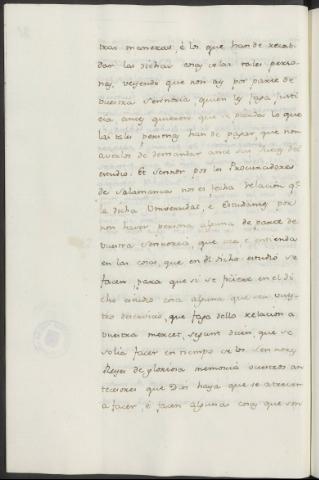 tras maneras, è los que han de recab-
dar las dichas cosas de las tales perso-
nas, veyendo que non ay por parte de
vuestra Sennoria quien les faga justi
cia, antes quieren que se pierda lo que
las tales personas han de pagar, que non
averlos de demandar ante sus Juezes del
estudio. Et Sennor por los Procuradores
de Salamanca nos es fecha relacion qe
la dicha Universidad, è Estudiantes por
non haver persona alguna de parte de
vuestra Sennoria, que vea, è entienda
en las cosas, que en el dicho estudio se
facen, para que si se ficiere en el di
cho estudio cosa alguna que sea vues-
tro deservicio, que faga dello relacion a
vuestra mercet, segunt dicen, que se
solia facer en tiempo de los Sennores
Reyes de gloriosa memoria vuestros an
tecesores que Dios haya que se atreven
a facer, è facen algunas cosas que son